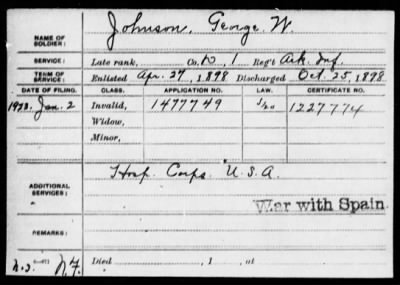 NAME OF SOLDIER: Johnson, George W.
SERVICE: Late rank, Co. D, 1 Reg't Ark. Inf.
TERM OF SERVICE: Enlisted Apr. 27, 1898 Discharged Oct. 25, 1898
DATE OF FILING. CLASS. APPLICATION NO. LAW. CERTIFICATE NO.
Jan. 2 Invalid, 1477749 1227774
Widow,
Minor,
ADDITIONAL SERVICES: Hosp. Corps. U.S.A.
War with Spain.
REMARKS:
Died , 1 , at